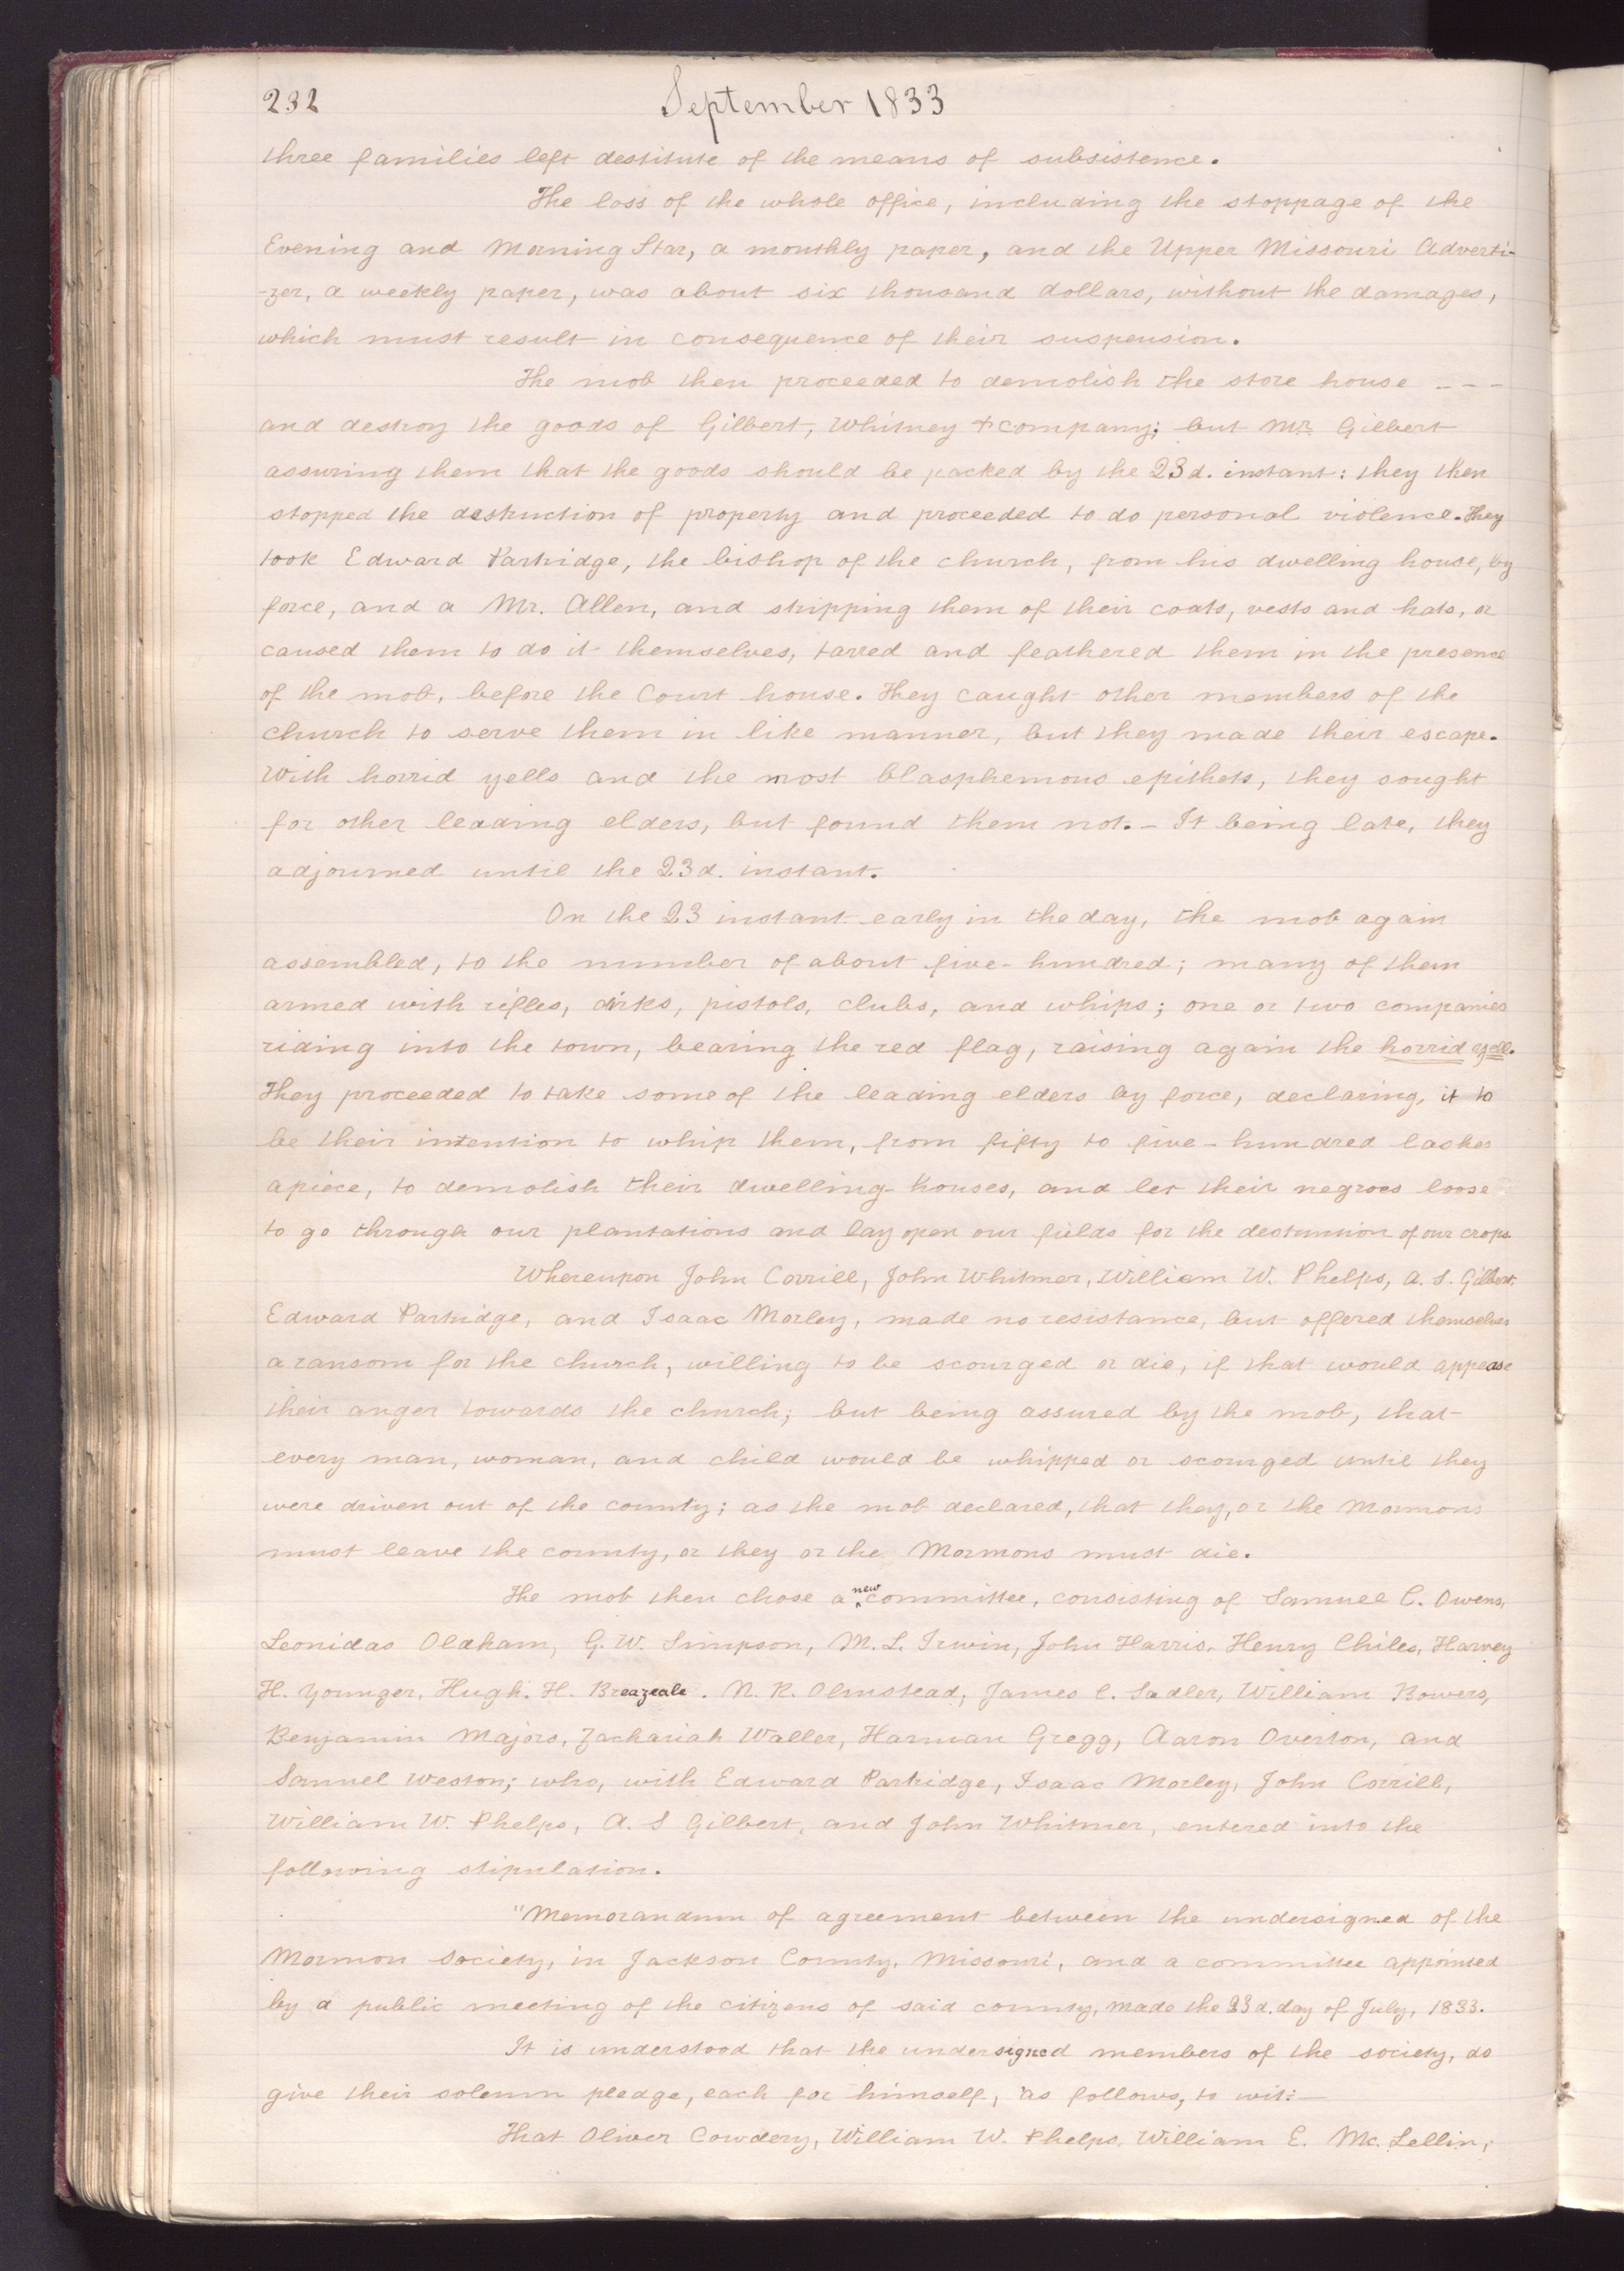 232
September 1833
three families left destitute of the means of subsistence.
The loss of the whole office, including the stoppage of the
Evening and Morning Star, a monthly paper, and the Upper Missouri Adverti-
-zer, a weekly paper, was about six thousand dollars, without the damages,
which must result in consequence of their suspension.
The mob then proceeded to demolish the store house - - -
and destroy the goods of Gilbert, Whitney & company; but Mr. Gilbert
assuring them that the goods should be packed by the 23d. instant: they then
stopped the destruction of property and proceeded to do personal violence. They
took Edward Partridge, the bishop of the church, from his dwelling house, by
force, and a Mr. Allen, and stripping them of their coats, vests and hats, or
caused them to do it themselves, tarred and feathered them in the presence
of the mob, before the Court house. They caught other members of the
church to serve them in like manner, but they made their escape.
With horrid yells and the most blasphemous epithets, they sought
for other leading elders, but found them not. - It being late, they
adjourned until the 23d. instant.
On the 23 instant early in the day, the mob again
assembled, to the number of about five-hundred; many of them
armed with rifles, dirks, pistols, clubs, and whips; one or two companies
riding into the town, bearing the red flag, raising again the horrid yell.
They proceeded to take some of the leading elders by force, declaring, it to
be their intention to whip them, from fifty to five-hundred lashes
apiece, to demolish their dwelling-houses, and let their negroes loose
to go through our plantations and lay open our fields for the destruction of our crops.
Whereupon John Corrill, John Whitmer, William W. Phelps, A. S. Gilbert.
Edward Partridge, and Isaac Morley, made no resistance, but offered themselves
a ransom for the church, willing to be scourged or die, if that would appease
their anger towards the church; but being assured by the mob, that
every man, woman, and child would be whipped or scourged until they
were driven out of the county; as the mob declared, that they, or the Mormons
must leave the county, or they or the Mormons must die.
The mob then chose a new committee, consisting of Samuel C. Owens,
Leonidas Oldham, G. W. Simpson, M. L. Irwin, John Harris, Henry Chiles, Harvey
H. Younger, Hugh. H. Breazeale. N. K. Olmstead, James C. Sadler, William Bowers,
Benjamin Majors, Zachariah Waller, Harman Gregg, Aaron Overton, and
Samuel Weston; who, with Edward Partridge, Isaac Morley, John Corrill,
William W. Phelps, A. S Gilbert, and John Whitmer, entered into the
following stipulation.
"Memorandum of agreement between the undersigned of the
Mormon society, in Jackson County, Missouri, and a committee appointed
by a public meeting of the citizens of said county, made the 23d. day of July, 1833.
It is understood that the undersigned members of the society, do
give their solemn pledge, each for himself, as follows, to wit:-
That Oliver Cowdery, William W. Phelps, William E. Mc. Lellin,